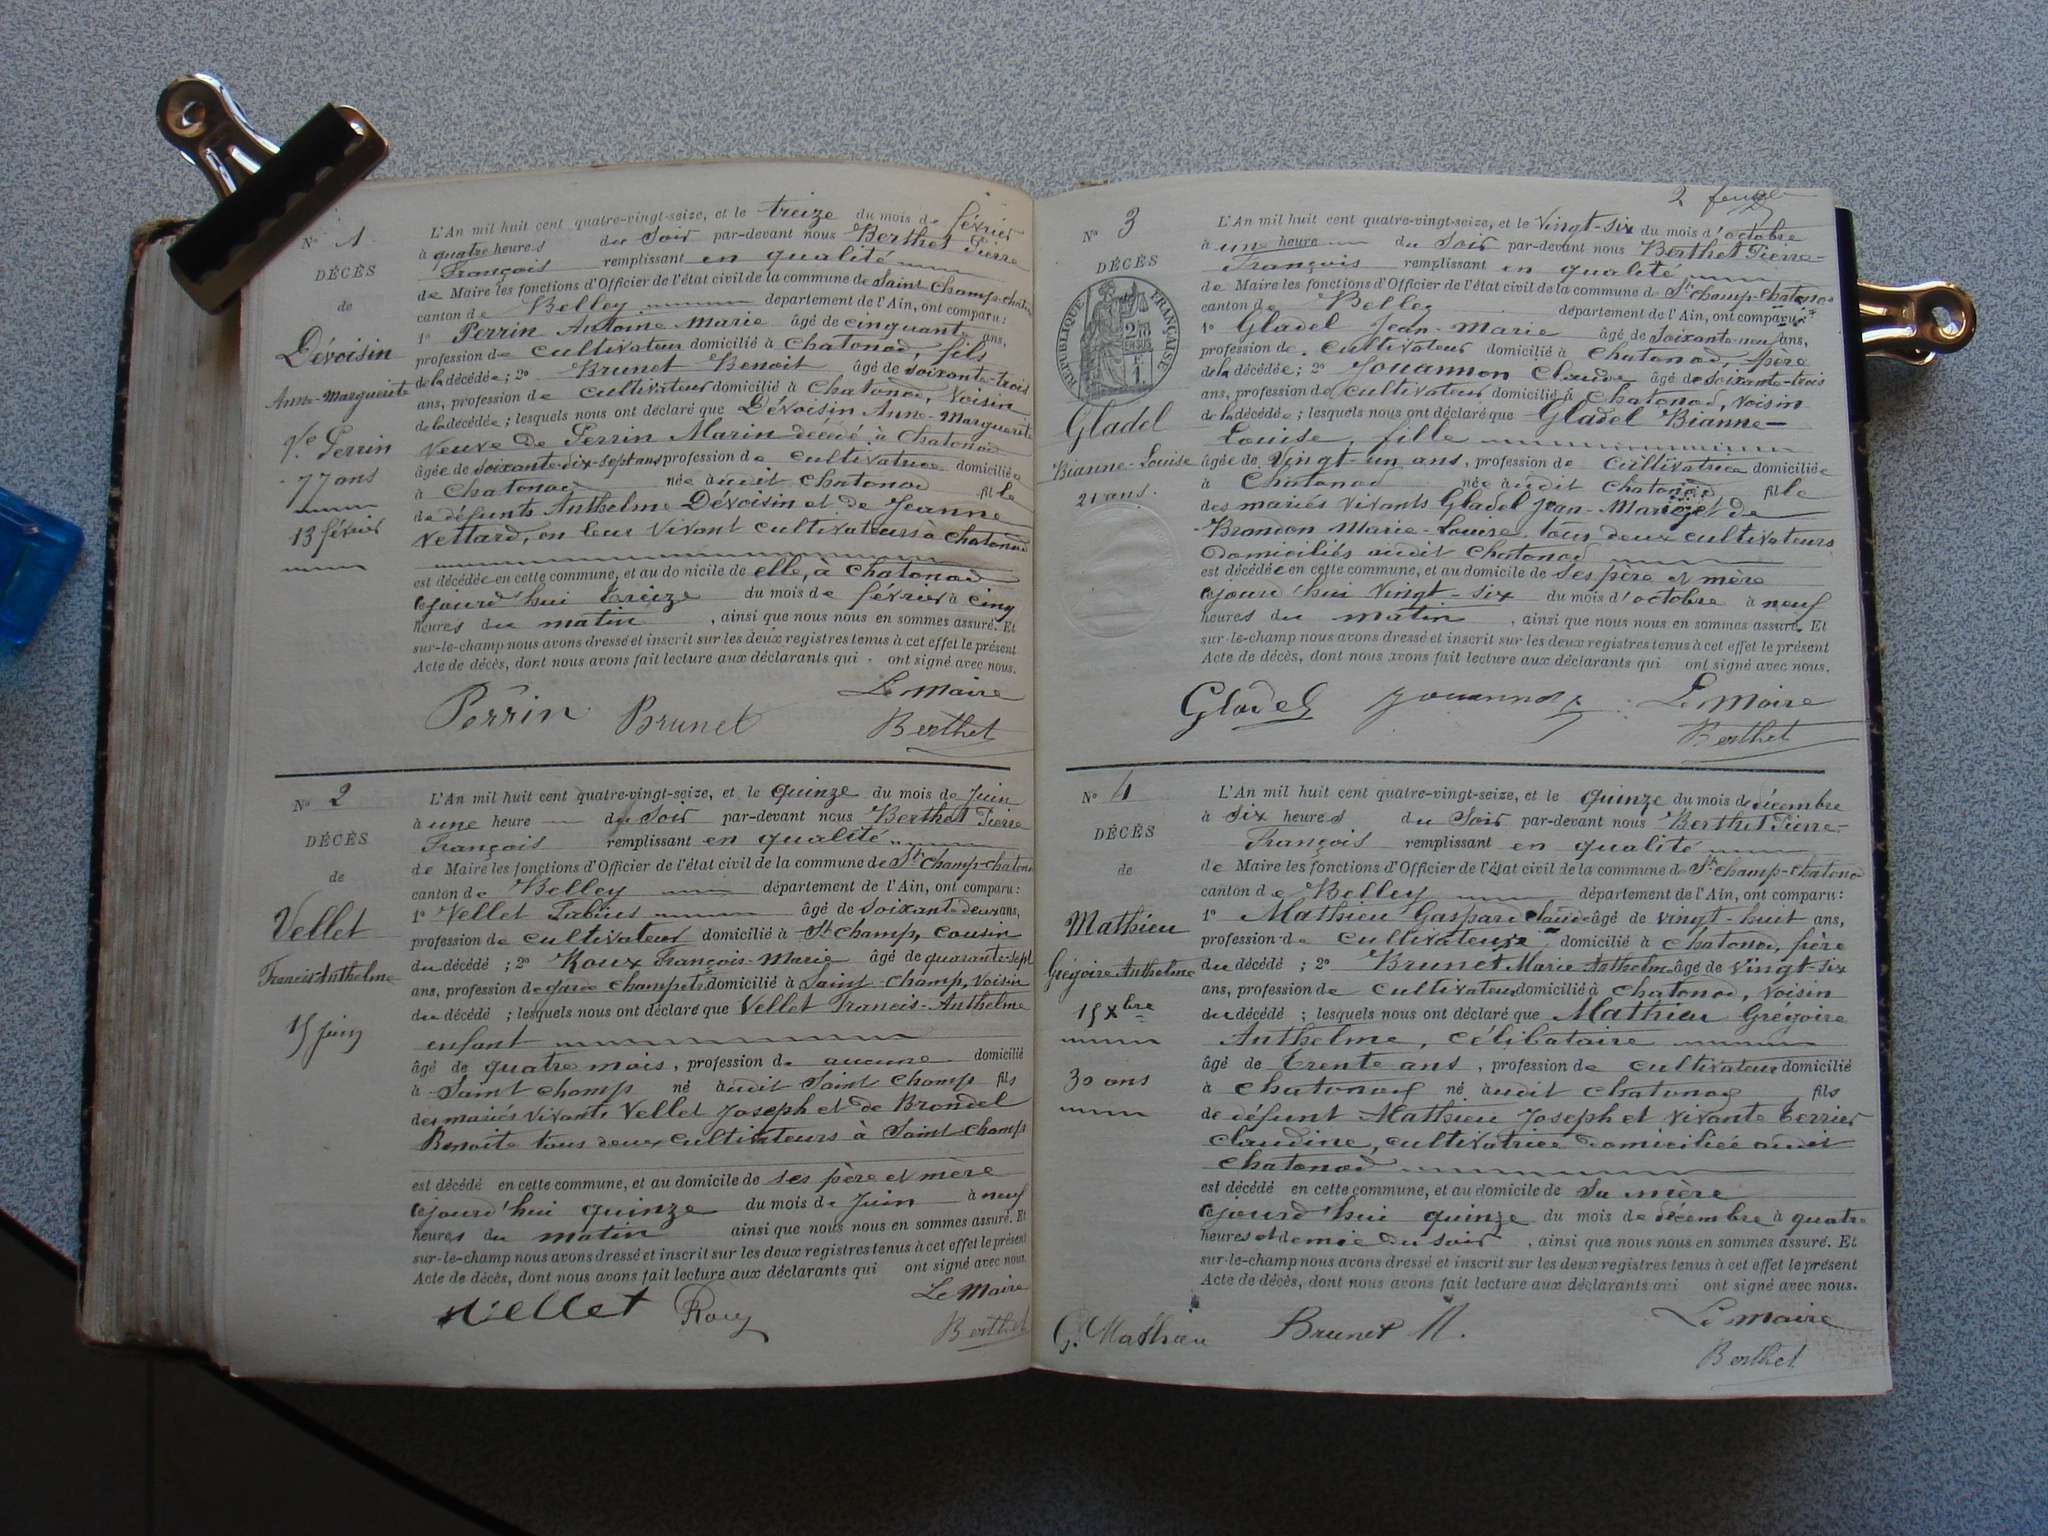 N° 1
DÉCÈS
de
Dévoisin
Anne-Marguerite
Ve Perrin
77 ans
13 février
L'An mil huit cent quatre-vingt-seize, et le treize du mois de février
à quatre heures du Soir par-devant nous Berthet Pierre
François remplissant en qualité
de Maire les fonctions d'Officier de l'état civil de la commune de Saint Champ-chatonod
canton de Belley département de l'Ain, ont comparu:
1° Perrin Antoine Marie âgé de cinquante ans,
profession de cultivateur domicilié à Chatonod, fils
de la décédée; 2° Brunet Benoit âgé de soixante-trois
ans, profession de cultivateur domicilié à Chatonod, Voisin
de la décédée; lesquels nous ont déclaré que Dévoisin Anne-Marguerite
Veuve de Perrin Marin décédé à Chatonod
âgée de soixante-dix-sept ans profession de cultivatrice domiciliée
à Chatonod née audit Chatonod fille
de défunts Anthelme Dévoisin et de Jeanne
Vettard, en leur vivant cultivateurs à Chatonod
est décédée en cette commune, et au domicile de elle, à Chatonod
cejourd'hui treize du mois de février à cinq
heures du matin, ainsi que nous nous en sommes assuré. Et
sur-le-champ nous avons dressé et inscrit sur les deux registres tenus à cet effet le présent
Acte de décès, dont nous avons fait lecture aux déclarants qui ont signé avec nous.
Le Maire
Perrin Brunet Berthet
N° 2
DÉCÈS
de
Vellet
Francis-Anthelme
15 Juin
L'An mil huit cent quatre-vingt-seize, et le quinze du mois de Juin
à une heure du Soir par-devant nous Berthet Pierre
François remplissant en qualité
de Maire les fonctions d'Officier de l'état civil de la commune de St champ-chatonod
canton de Belley département de l'Ain, ont comparu:
1° Vellet Fabius âgé de soixante deux ans,
profession de cultivateur domicilié à St champ, cousin
du décédé; 2° Roux François-Marie âgé de quarante-sept
ans, profession de garde champêtre domicilié à Saint-champ, Voisin
du décédé; lesquels nous ont déclaré que Vellet Francis-Anthelme
enfant
âgé de quatre mois, profession de aucune domicilié
à Saint champ né audit Saint champ fils
des mariés vivants Vellet Joseph et de Brondel
Benoite tous deux cultivateurs à Saint champ
est décédé en cette commune, et au domicile de ses père et mère
cejourd'hui quinze du mois de Juin à neuf
heures du matin ainsi que nous nous en sommes assuré. Et
sur-le-champ nous avons dressé et inscrit sur les deux registres tenus à cet effet le présent
Acte de décès, dont nous avons fait lecture aux déclarants qui ont signé avec nous.
Le Maire
Vellet Roux Berthet
2
N° 3
DÉCÈS
RÉPUBLIQUE FRANÇAISE
Gladel
Bianne-Louise
21 ans.
L'An mil huit cent quatre-vingt-seize, et le Vingt-six du mois d'octobre
à une heure du Soir par-devant nous Berthet Pierre-
François remplissant en qualité
de Maire les fonctions d'Officier de l'état civil de la commune de St champ-chatonod
canton de Belley département de l'Ain, ont comparu:
1° Gladel Jean-Marie âgé de soixante-neuf ans,
profession de cultivateur domicilié à Chatonod, père
de la décédée; 2° Jouannon Claude âgé de soixante-trois
ans, profession de cultivateur domicilié à Chatonod, voisin
de la décédée; lesquels nous ont déclaré que Gladel Bianne-
Louise, fille
âgée de Vingt-un ans, profession de cultivatrice domiciliée
à Chatonod née audit Chatonod fille
des mariés vivants Gladel Jean-Marie et de
Brandon Marie-Louise, tous deux cultivateurs
domiciliés audit Chatonod
est décédée en cette commune, et au domicile de ses père et mère
cejourd'hui Vingt-six du mois d'octobre à neuf
heures du matin, ainsi que nous nous en sommes assuré. Et
sur-le-champ nous avons dressé et inscrit sur les deux registres tenus à cet effet le présent
Acte de décès, dont nous avons fait lecture aux déclarants qui ont signé avec nous.
Gladel Jouannon Le Maire
Berthet
N° 4
DÉCÈS
de
Mathieu
Grégoire Anthelme
15 Xbre
30 ans
L'An mil huit cent quatre-vingt-seize, et le quinze du mois de décembre
à six heures du Soir par-devant nous Berthet Pierre-
François remplissant en qualité
de Maire les fonctions d'Officier de l'état civil de la commune de St champ-chatonod
canton de Belley département de l'Ain, ont comparu:
1° Mathieu Gaspard Claude âgé de vingt-huit ans,
profession de cultivateur domicilié à Chatonod, frère
du décédé; 2° Brunet Marie Anthelme âgé de Vingt-six
ans, profession de cultivateur domicilié à Chatonod, Voisin
du décédé; lesquels nous ont déclaré que Mathieu Grégoire
Anthelme, célibataire
âgé de trente ans, profession de cultivateur domicilié
à Chatonod né audit Chatonod fils
de défunt Mathieu Joseph et vivante Terrier
Claudine, cultivatrice domiciliée audit
Chatonod
est décédé en cette commune, et au domicile de sa mère
cejourd'hui quinze du mois de décembre à quatre
heures et demie du soir, ainsi que nous nous en sommes assuré. Et
sur-le-champ nous avons dressé et inscrit sur les deux registres tenus à cet effet le présent
Acte de décès, dont nous avons fait lecture aux déclarants qui ont signé avec nous.
G. Mathieu Brunet M. Le Maire
Berthet